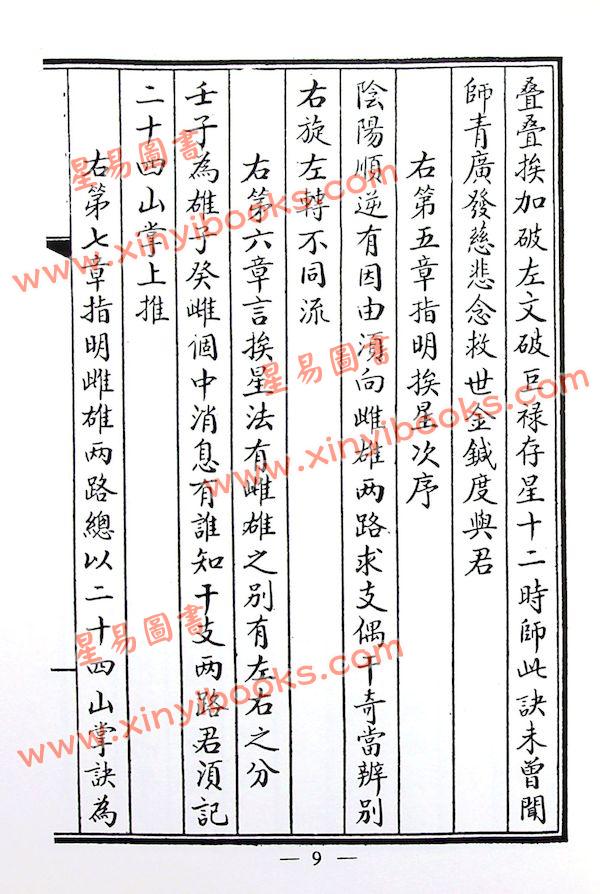 叠叠挨加破左文破巨祿存星十二時師此訣未曾聞
師青廣發慈悲念救世金鍼度與君
右第五章指明挨星次序
陰陽順逆有因由須向雌雄两路求支偶干奇當辨别
右旋左轉不同流
右第六章言挨星法有雌雄之别有左右之分
壬子為雄子癸雌個中消息有誰知干支两路君須記
二十四山掌上推
右第七章指明雌雄两路總以二十四山掌訣為
— 9 —
星易圖書
www.xinyibooks.com
星易圖書
www.xinyibooks.com
星易圖書
www.xinyibooks.com